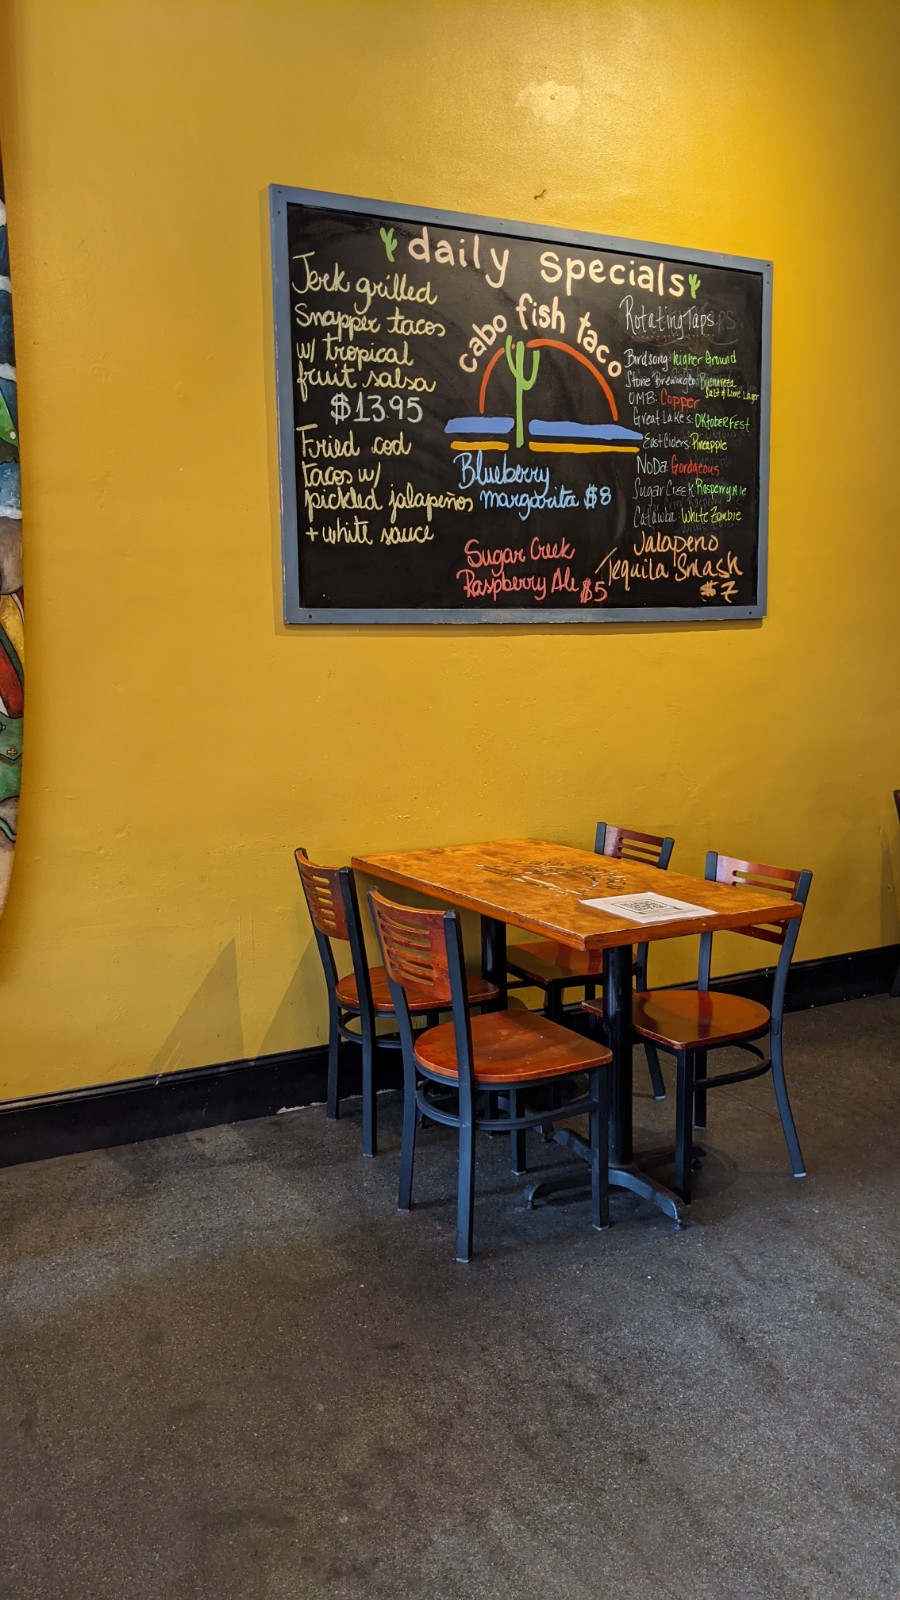 daily specials
Jerk grilled
Snapper tacos
w/ tropical
fruit salsa
$13.95
Fried cod
tacos w/
pickled jalapeños
+ white sauce
cabo fish taco
Blueberry
margarita $8
Sugar Creek
Raspberry Ale $5
Rotating Taps
Birdsong: higher Ground
Stone Brewing: Buenaveza
Salt & Lime Lager
OMB: Copper
Great Lakes: Oktoberfest
East Ciders: Pineapple
NoDa: Gordgeous
Sugar Creek: Rasperry Ale
Catawba: White Zombie
Jalapeno
Tequila Smash
$7